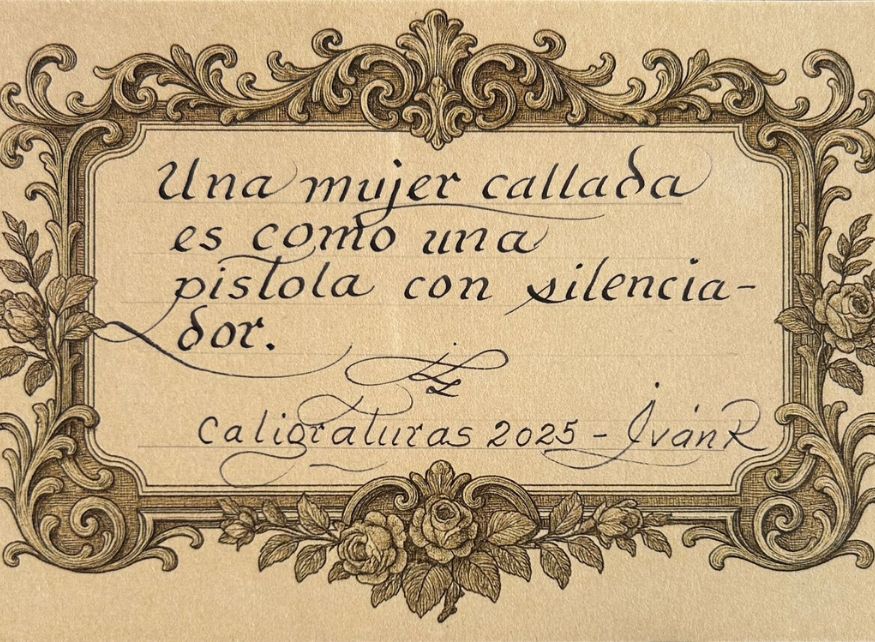 Una mujer callada
es como una
pistola con silencia-
dor.
Caligraturas 2025 - IvánR